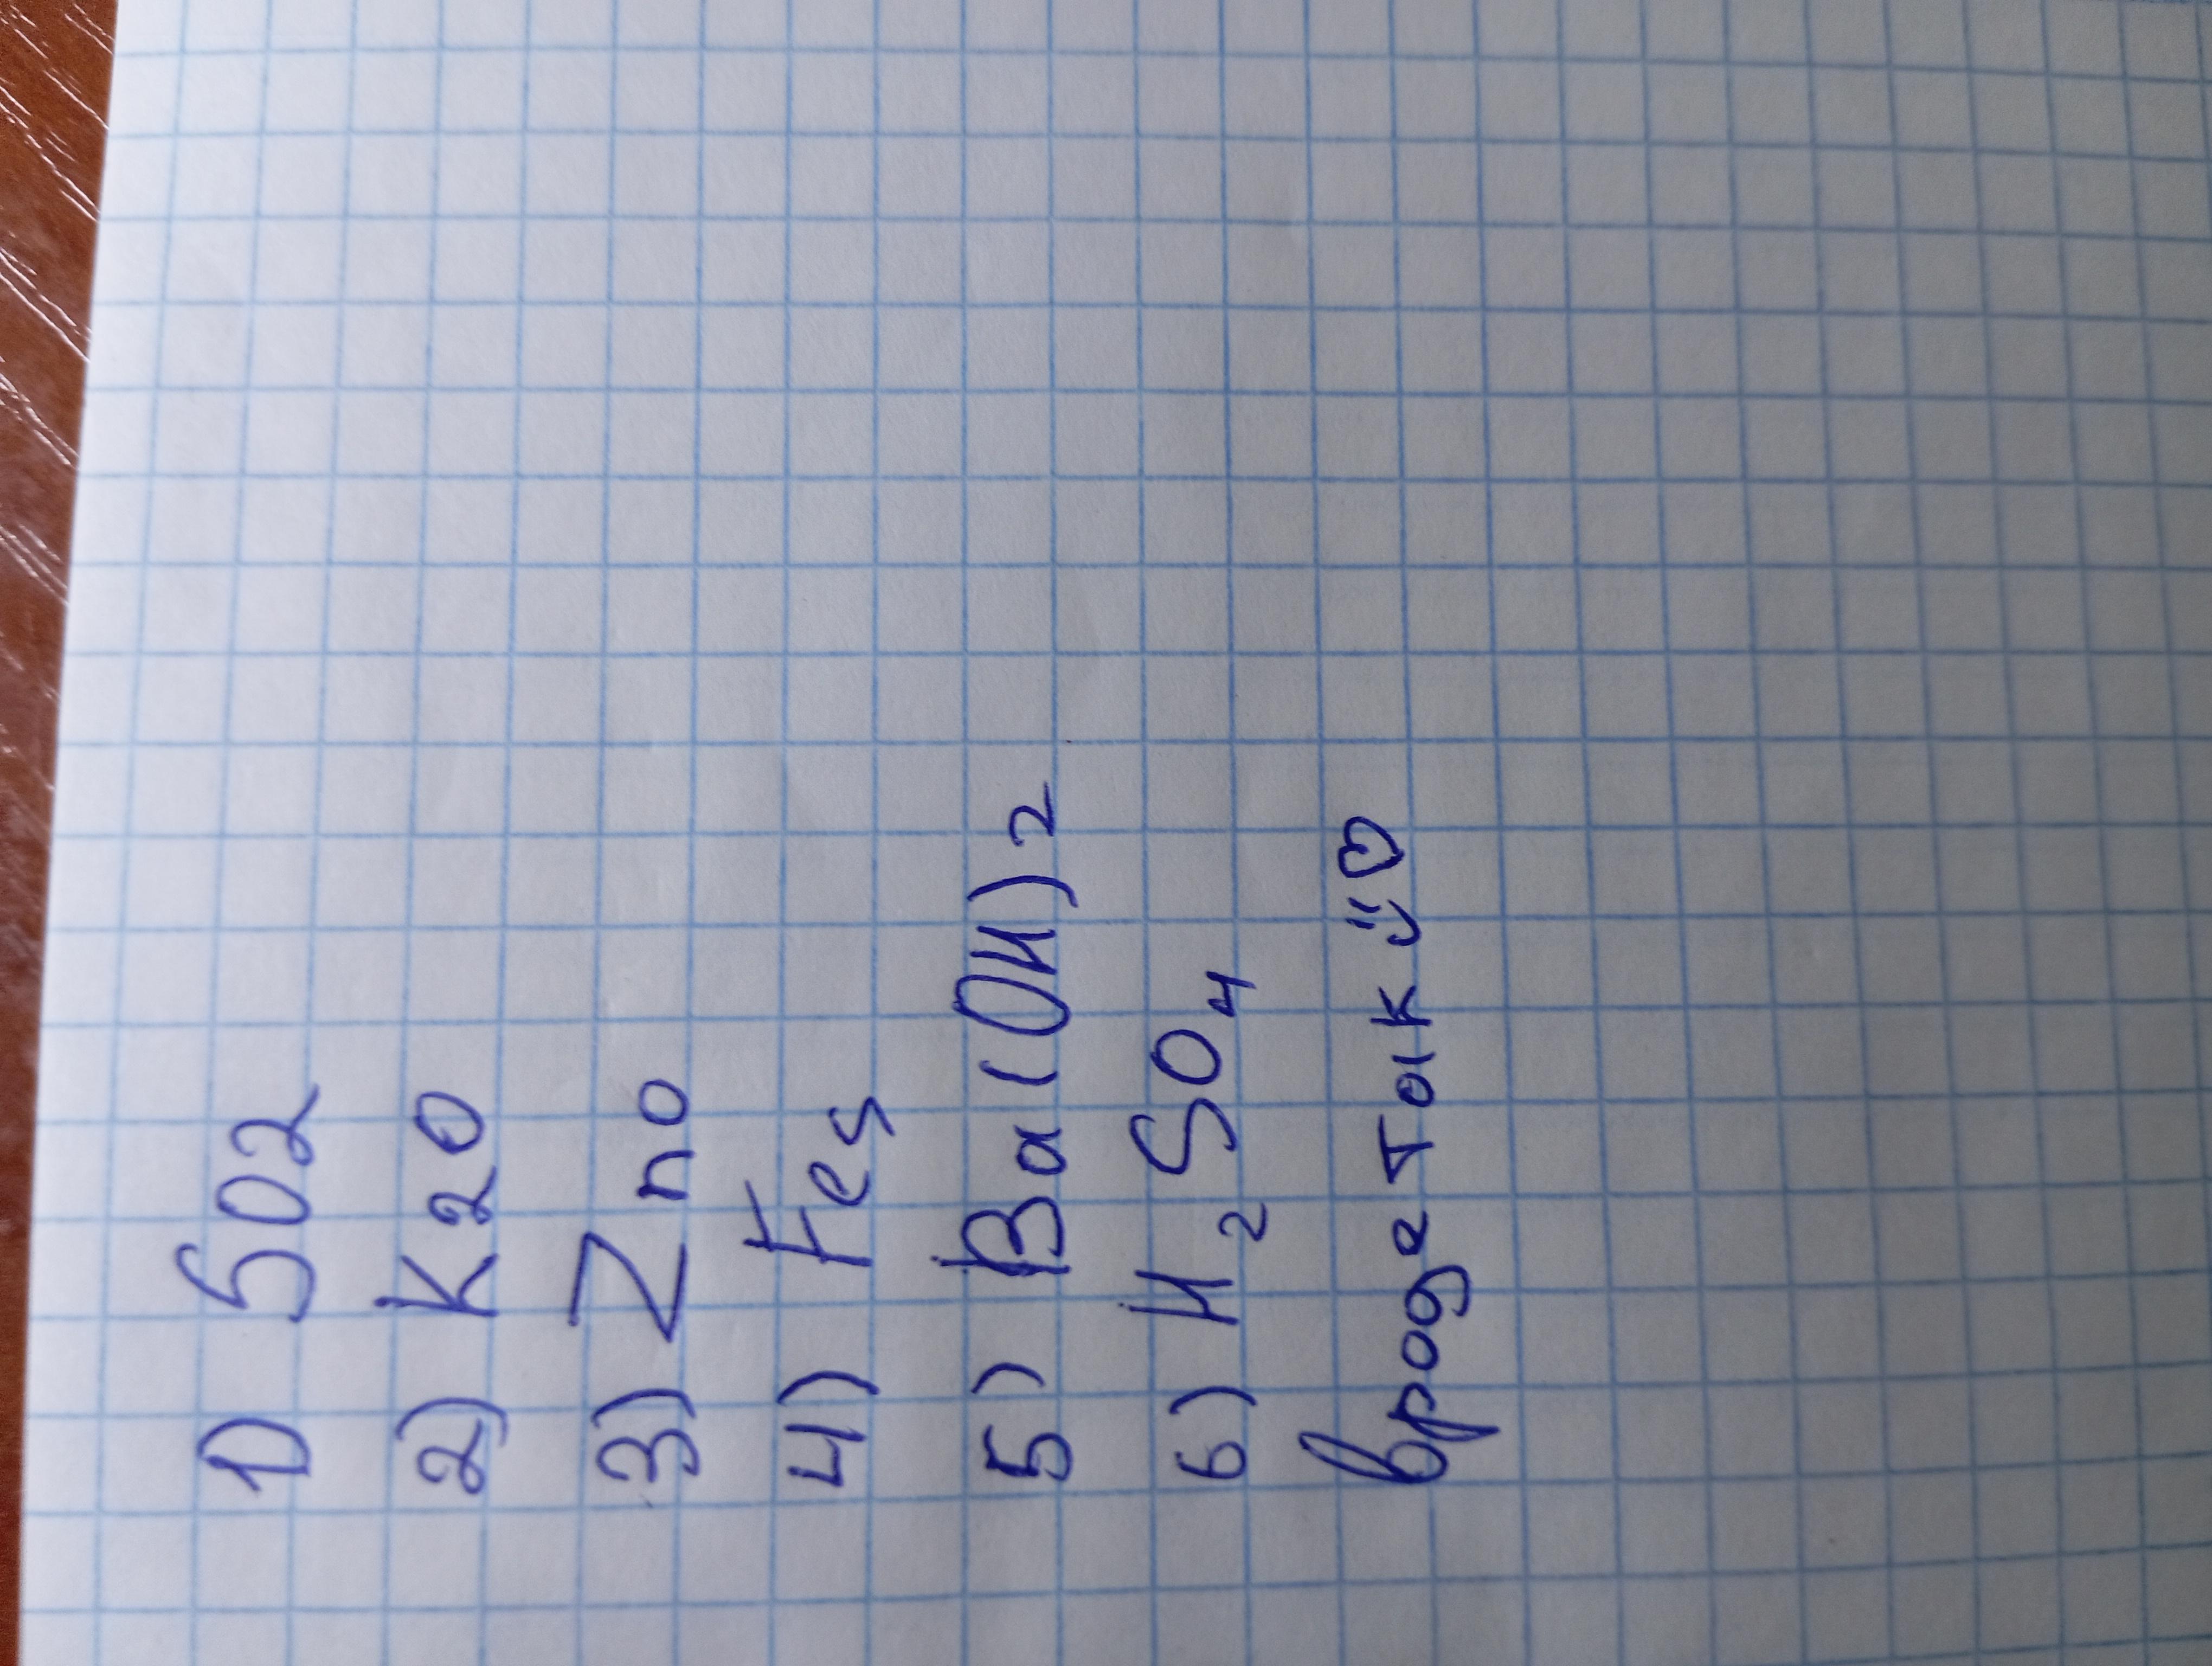 1) SO2
2) K2O
3) Zno
4) Fes
5) Ba(OH)2
6) H2SO4
вроде так :) ♡